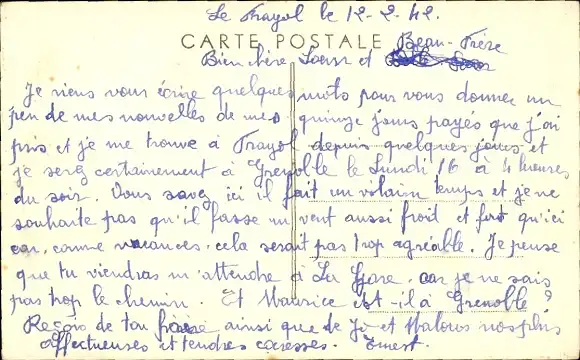 Le Frayol le 12-2-42.
CARTE POSTALE
Bien chère Soeur et Beau-Frère
Je viens vous écrire quelques mots pour vous donner un
peu de mes nouvelles de mes quinze jours payés que j'ai
pris et je me trouve à Frayol depuis quelques jours et
je serez certainement à Grenoble le Lundi 16 à 4 heures
du soir. Vous savez ici il fait un vilain temps et je ne
souhaite pas qu'il fasse un vent aussi froit et fort qu'ici
car, comme vacances, cela serait pas trop agréable. Je pense
que tu viendras m'attendre à La Gare, car je ne sais
pas trop le chemin. Et Maurice est-il à Grenoble?
Reçois de ton frère ainsi que de et nos plus
affectueuses et tendres caresses. Ernest.